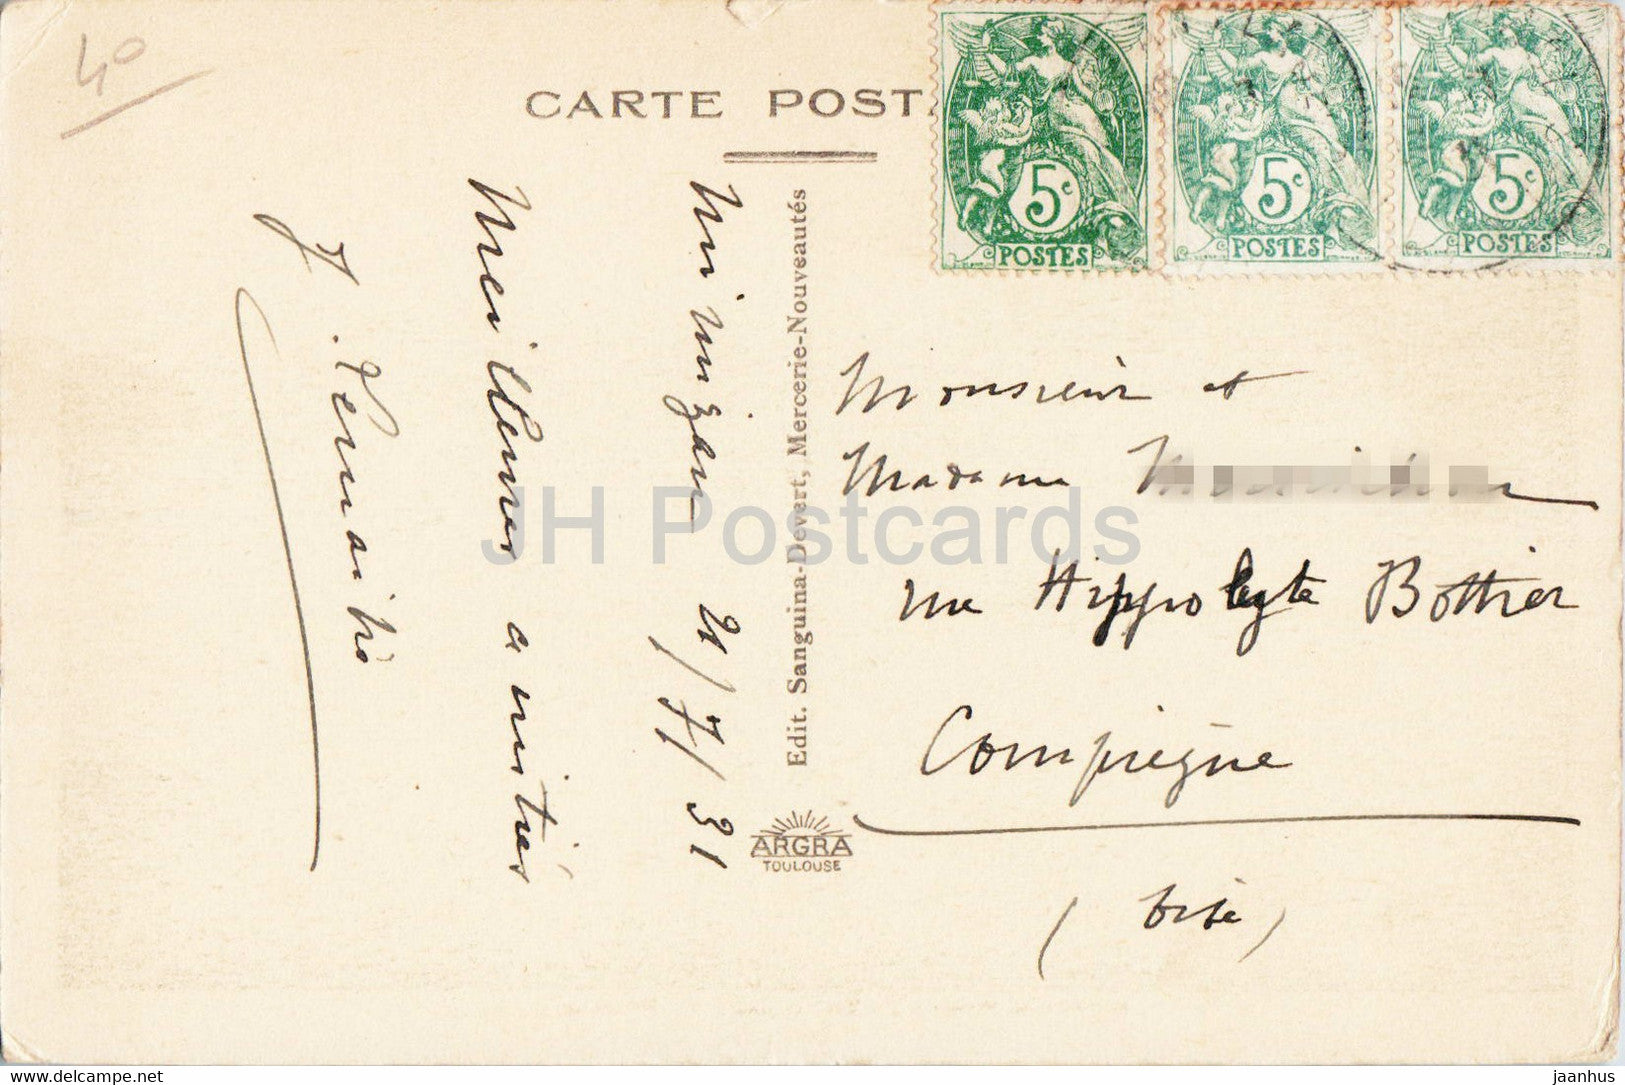 40
CARTE POSTA
5c
POSTES
5c
POSTES
5c
POSTES
Mimizan 21/7/31
Meilleures amitiés
Edit. Sanguina-Devert, Mercerie-Nouveautés
ARGRA
TOULOUSE
Monsieur et
Madame
rue Hippolyte Bottier
Compiègne
(Oise)
JH Postcards
www.jhpostcards.com
jaanhus